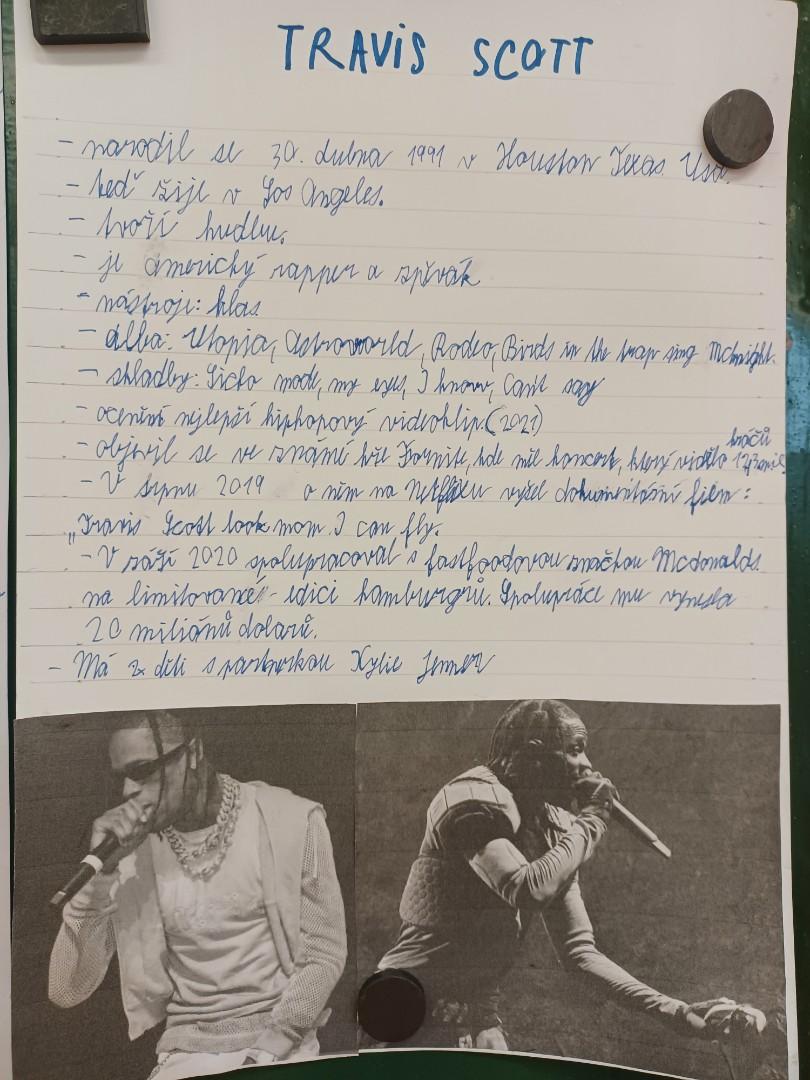 TRAVIS SCOTT
- narodil se 30. dubna 1991 v Houston Texas Usa.
- teď žije v Los Angeles.
- tvoří hudbu.
- je americký rapper a zpěvák
- nástroje: hlas
- alba: Utopia, Astroworld, Rodeo, Birds in the trap sing Mcknight.
- skladby: Sicko mode, my eyes, I know, Can't say
- ocenění nejlepší hiphopový videoklip. (2021)
- objevil se ve známé hře Fornite, kde měl koncert, který vidělo
hráčů
- V srpnu 2019 o něm na Netflixu vyšel dokumentární film:
"Travis Scott look mom I can fly.
- V září 2020 spolupracoval s fastfoodovou značkou Mcdonalds
na limitované edici hamburgrů. Spolupráce mu vynesla
20 miliónů dolarů.
- Má 2 děti s partnerkou Kylie Jenner